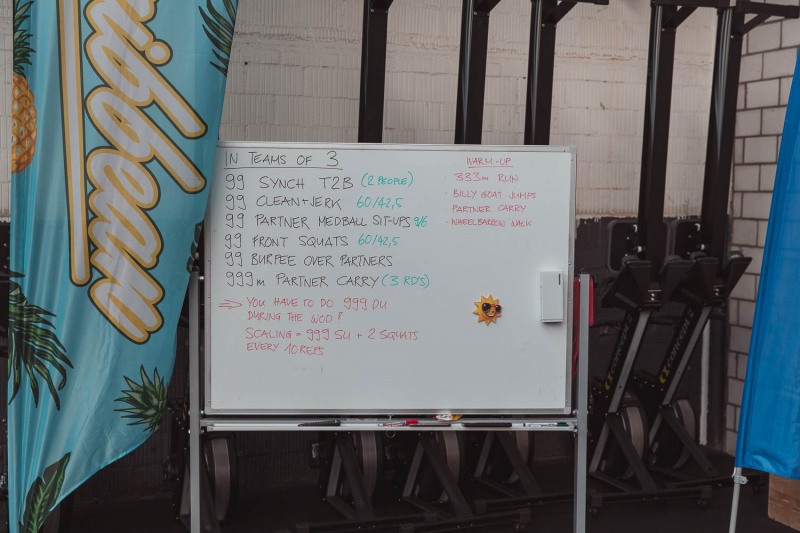 ribbean
IN TEAMS OF 3
99 SYNCH T2B (2 PEOPLE)
99 CLEAN+JERK 60/42,5
99 PARTNER MEDBALL SIT-UPS 9/6
99 FRONT SQUATS 60/42,5
99 BURPEE OVER PARTNERS
999m PARTNER CARRY (3 RD'S)
⇒ YOU HAVE TO DO 999 DU
DURING THE WOD!
SCALING = 999 SU + 2 SQUATS
EVERY 10 REPS
WARM-UP
· 333m RUN
· BILLY GOAT JUMPS
· PARTNER CARRY
· WHEELBARROW WALK
CONCEPT 2